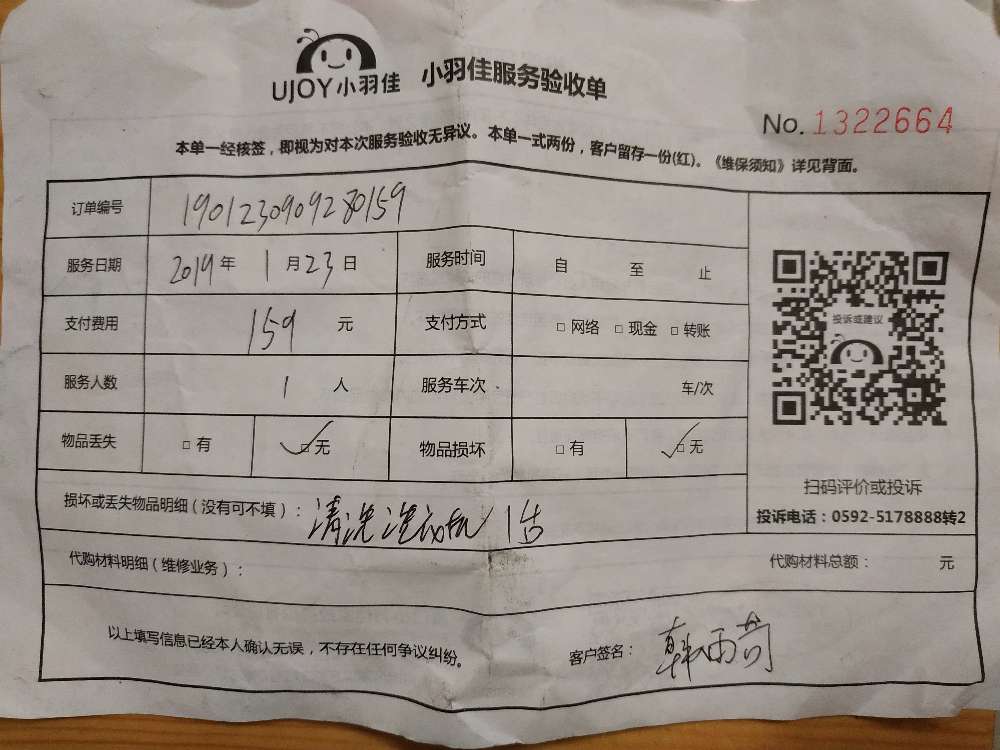 UJOY小羽佳 小羽佳服务验收单
No. 1322664
本单一经核签，即视为对本次服务验收无异议。本单一式两份，客户留存一份(红)。《维保须知》详见背面。
订单编号 190123090928 0159
服务日期 2019年 1月23日 服务时间 自 至 止
支付费用 159 元 支付方式 □网络 □现金 □转账
服务人数 1 人 服务车次 车/次
物品丢失 □有 ✓□无 物品损坏 □有 ✓□无
损坏或丢失物品明细（没有可不填）：清洗洗衣机 1台
代购材料明细（维修业务）： 代购材料总额： 元
以上填写信息已经本人确认无误，不存在任何争议纠纷。 客户签名：韩雨
投诉或建议
扫码评价或投诉
投诉电话：0592-5178888转2